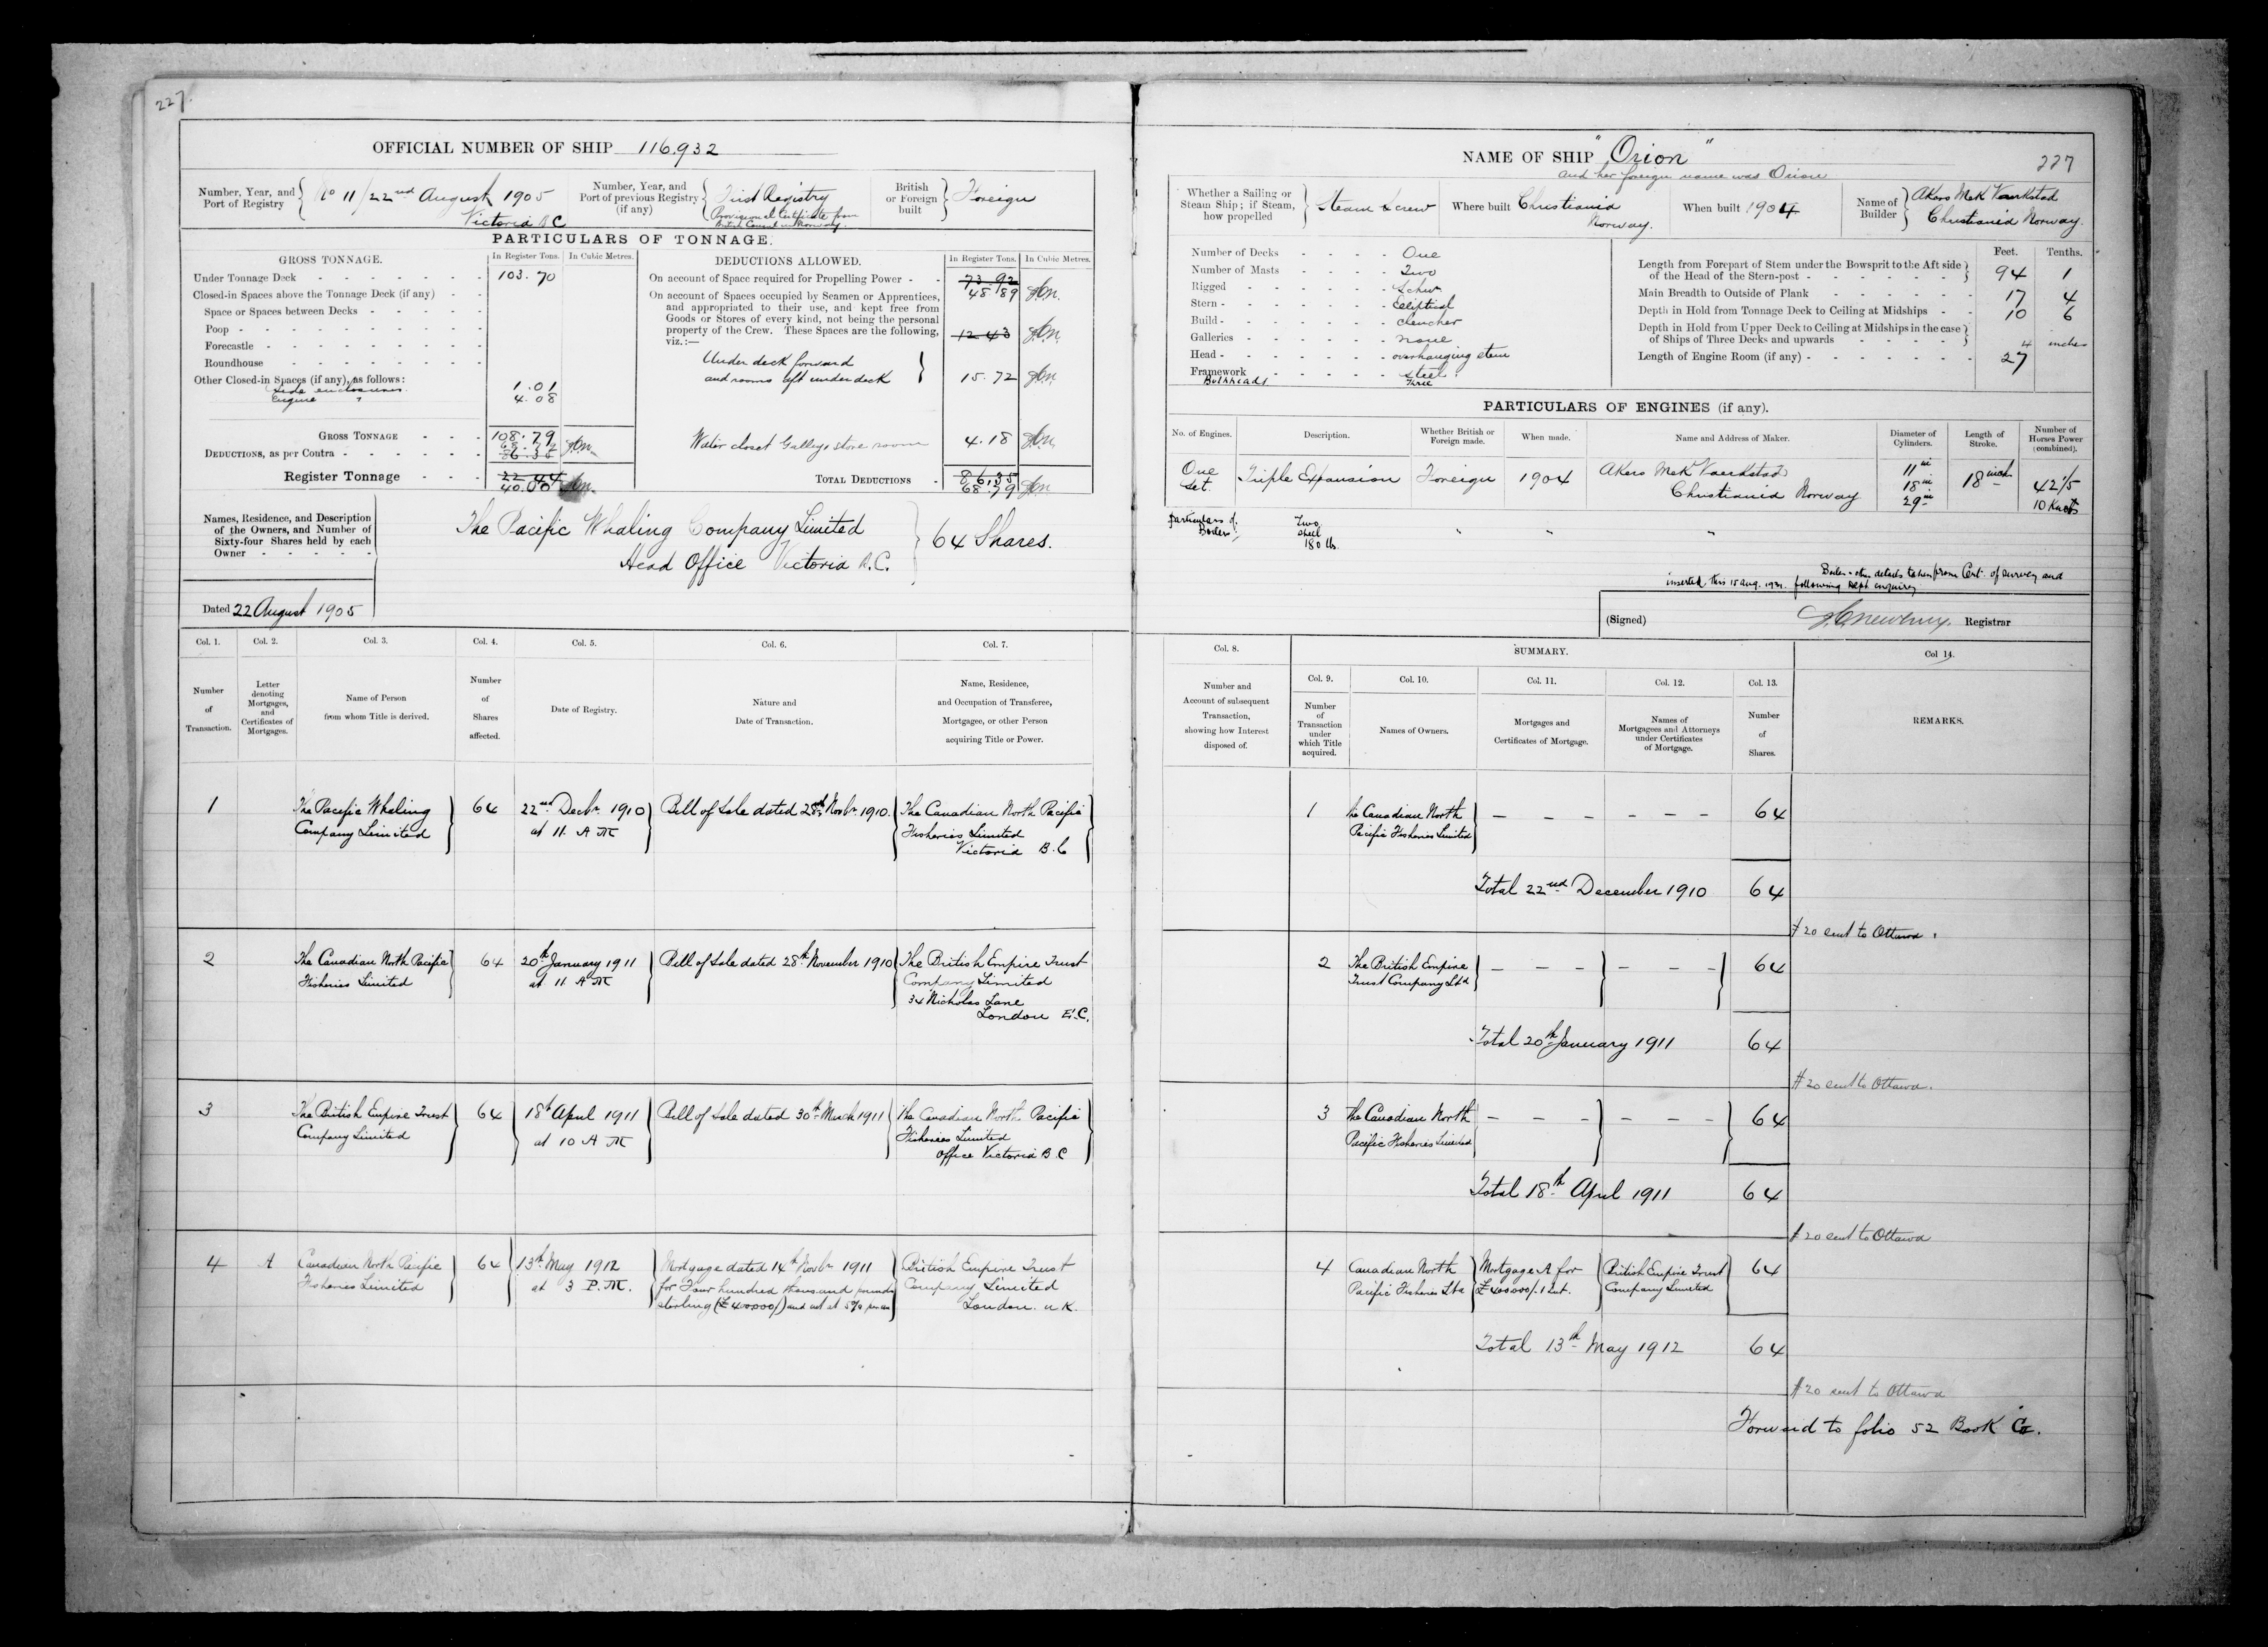 227.
OFFICIAL NUMBER OF SHIP 116.932
Number, Year, and Port of Registry
No 11/22nd August 1905
Victoria B.C
Number, Year, and Port of previous Registry (if any)
First Registry
Provisional Certificate from
British Consul in Norway.
British or Foreign built
Foreign
PARTICULARS OF TONNAGE.
GROSS TONNAGE.
In Register Tons.
In Cubic Metres.
Under Tonnage Deck 103.70
Closed-in Spaces above the Tonnage Deck (if any)
Space or Spaces between Decks
Poop
Forecastle
Roundhouse
Other Closed-in Spaces (if any), as follows:
Side enclosures 1.01
Engine " 4.08
GROSS TONNAGE 108.79
68.79
DEDUCTIONS, as per Contra 86.35
Register Tonnage 22.44
40.00
DEDUCTIONS ALLOWED.
In Register Tons.
In Cubic Metres.
On account of Space required for Propelling Power 73.92
48.89
On account of Spaces occupied by Seamen or Apprentices,
and appropriated to their use, and kept free from
Goods or Stores of every kind, not being the personal
property of the Crew. These Spaces are the following,
viz.:— 12.43
Under deck forward
and rooms aft under deck 15.72
Water closet Galley, store room 4.18
TOTAL DEDUCTIONS 86.35
68.79
Names, Residence, and Description
of the Owners, and Number of
Sixty-four Shares held by each
Owner
The Pacific Whaling Company Limited
Head Office Victoria B.C.
64 Shares.
Dated 22 August 1905
Col. 1.
Number
of
Transaction.
Col. 2.
Letter
denoting
Mortgages,
and
Certificates of
Mortgages.
Col. 3.
Name of Person
from whom Title is derived.
Col. 4.
Number
of
Shares
affected.
Col. 5.
Date of Registry.
Col. 6.
Nature and
Date of Transaction.
Col. 7.
Name, Residence,
and Occupation of Transferee,
Mortgagee, or other Person
acquiring Title or Power.
1
The Pacific Whaling
Company Limited
64
22nd Decbr 1910
at 11 A M
Bill of Sale dated 28th Novbr 1910.
The Canadian North Pacific
Fisheries Limited
Victoria B.C
2
The Canadian North Pacific
Fisheries Limited
64
20th January 1911
at 11 A M
Bill of Sale dated 28th November 1910
The British Empire Trust
Company Limited
34 Nicholas Lane
London E.C.
3
The British Empire Trust
Company Limited
64
18th April 1911
at 10 A M
Bill of Sale dated 30th March 1911
The Canadian North Pacific
Fisheries Limited
Office Victoria B.C
4
A
Canadian North Pacific
Fisheries Limited
64
13th May 1912
at 3 P.M.
Mortgage dated 14th Novbr 1911
for Four hundred thousand pounds
sterling (£400000/) and int at 5% per an
British Empire Trust
Company Limited
London. U.K.
NAME OF SHIP "Orion"
227
and her foreign name was Orion
Whether a Sailing or
Steam Ship; if Steam,
how propelled
Steam Screw
Where built
Christiania
Norway.
When built 1904
Name of Builder
Akers Mek Vaerkstad
Christiania Norway.
Number of Decks One
Number of Masts Two
Rigged Schr
Stern Eliptical
Build Clencher
Galleries none
Head overhanging stem
Framework steel
Bulkheads Three
Feet.
Tenths.
Length from Forepart of Stem under the Bowsprit to the Aft side
of the Head of the Stern-post 94 1
Main Breadth to Outside of Plank 17 4
Depth in Hold from Tonnage Deck to Ceiling at Midships 10 6
Depth in Hold from Upper Deck to Ceiling at Midships in the case
of Ships of Three Decks and upwards
4 inches
Length of Engine Room (if any) 27
PARTICULARS OF ENGINES (if any).
No. of Engines.
Description.
Whether British or
Foreign made.
When made.
Name and Address of Maker.
Diameter of
Cylinders.
Length of
Stroke.
Number of
Horses Power
(combined).
One
Set.
Triple Expansion
Foreign
1904
Akers Mek Vaerkstad
Christiania Norway
11 in
18 in
29 in
18 inch
42 1/5
10 Knots
Particulars of
Boilers
Two
Steel
180 lbs.
" " "
Boiler & other details taken from Cert. of survey and
inserted this 15 Aug. 1921. following Dept enquiry
(Signed)
Registrar
Col. 8.
Number and
Account of subsequent
Transaction,
showing how Interest
disposed of.
SUMMARY.
Col. 9.
Number
of
Transaction
under
which Title
acquired.
Col. 10.
Names of Owners.
Col. 11.
Mortgages and
Certificates of Mortgage.
Col. 12.
Names of
Mortgagees and Attorneys
under Certificates
of Mortgage.
Col. 13.
Number
of
Shares.
Col 14.
REMARKS.
1
The Canadian North
Pacific Fisheries Limited
— — — — — —
64
Total 22nd December 1910 64
# 20 sent to Ottawa.
2
The British Empire
Trust Company Ltd
— — — — — —
64
Total 20th January 1911 64
# 20 sent to Ottawa.
3
The Canadian North
Pacific Fisheries Limited
— — — — — —
64
Total 18th April 1911 64
# 20 sent to Ottawa
4
Canadian North
Pacific Fisheries Ltd
Mortgage A for
£400000/. & Int.
British Empire Trust
Company Limited
64
Total 13th May 1912 64
# 20 sent to Ottawa
Forward to folio 52 Book